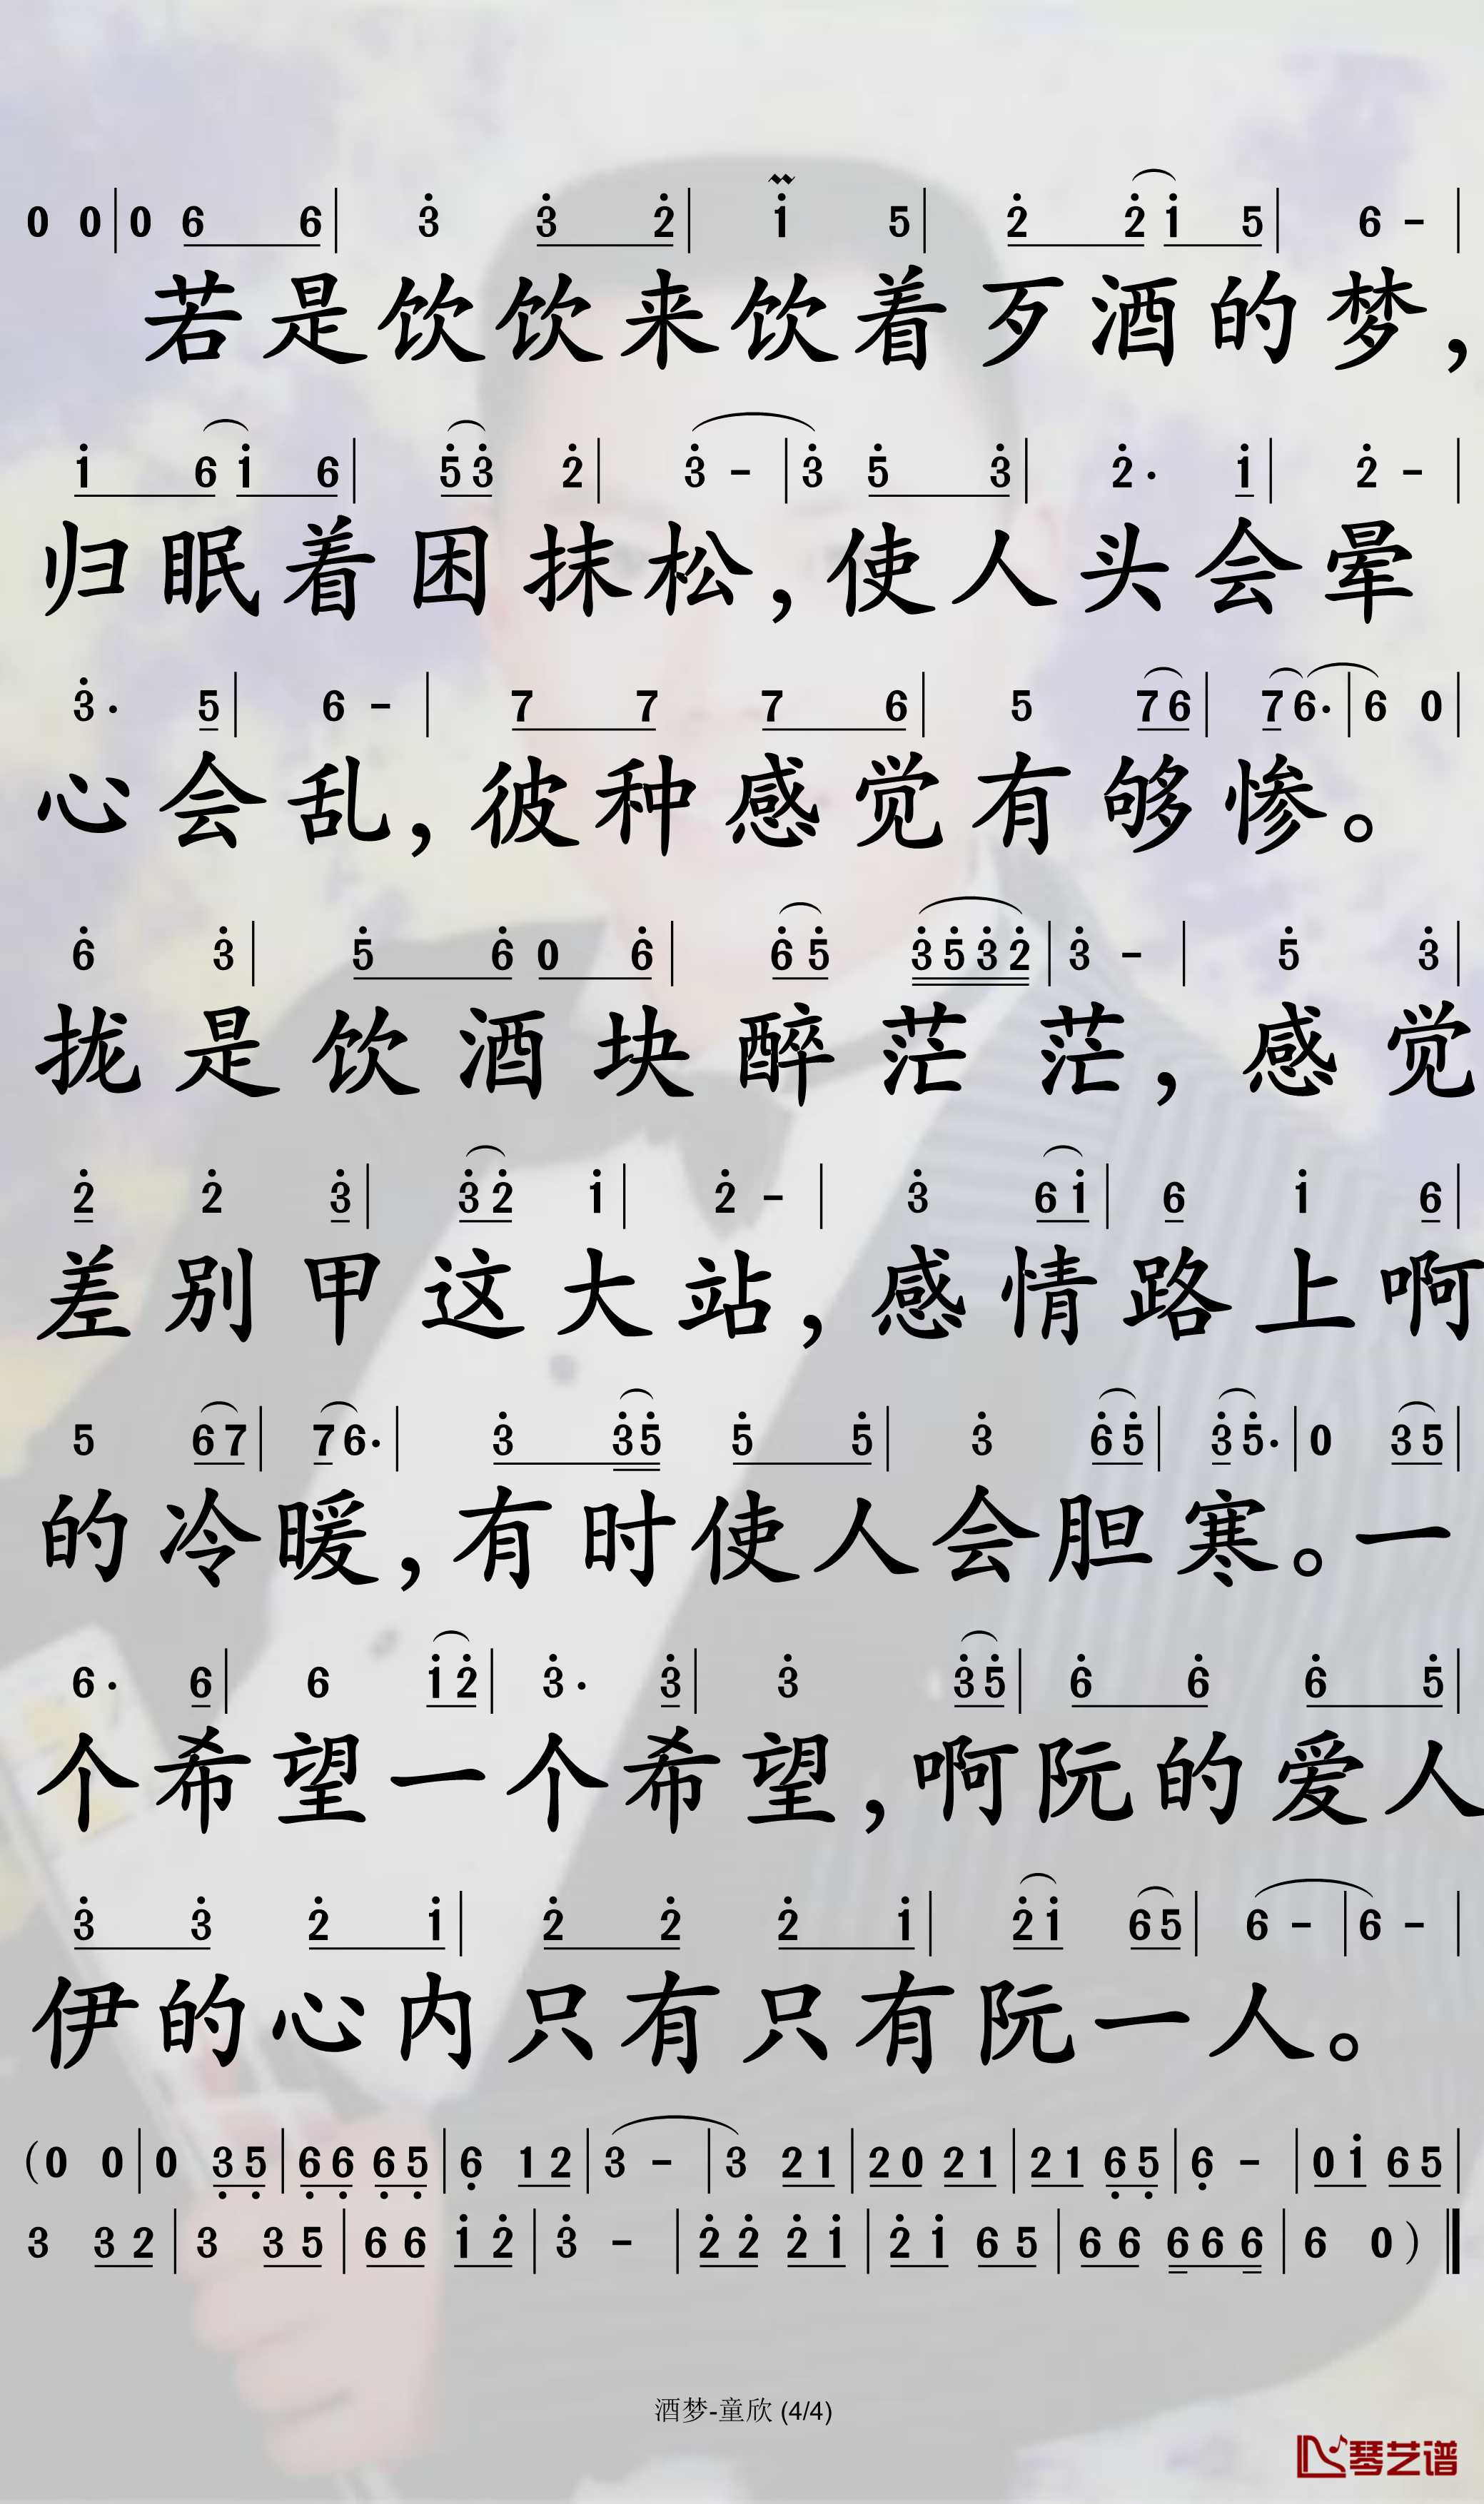 0 0 | 0 6 6 | 3̇ 3̇ 2̇ | 1̇ 5 | 2̇ 2̇ 1̇ 5 | 6 - |
若是饮饮来饮着歹酒的梦，
1̇ 6 1̇ 6 | 5̇ 3̇ 2̇ | 3̇ - | 3̇ 5̇ 3̇ | 2̇· 1̇ | 2̇ - |
归眠着困抹松，使人头会晕
3̇· 5 | 6 - | 7 7 7 6 | 5 7 6 | 7 6· | 6 0 |
心会乱，彼种感觉有够惨。
6̇ 3̇ | 5̇ 6̇ 0 6̇ | 6̇ 5̇ 3̇ 5̇ 3̇ 2̇ | 3̇ - | 5̇ 3̇ |
拢是饮酒块醉茫茫，感觉
2̇ 2̇ 3̇ | 3̇ 2̇ 1̇ | 2̇ - | 3̇ 6 1̇ | 6 1̇ 6 |
差别甲这大站，感情路上啊
5 6 7 | 7 6· | 3̇ 3̇ 5̇ 5̇ 5̇ | 3̇ 6̇ 5̇ | 3̇ 5̇· | 0 3 5 |
的冷暖，有时使人会胆寒。一
6· 6 | 6 1̇ 2̇ | 3̇· 3̇ | 3̇ 3̇ 5̇ | 6̇ 6̇ 6̇ 5̇ |
个希望一个希望，啊阮的爱人
3̇ 3̇ 2̇ 1̇ | 2̇ 2̇ 2̇ 1̇ | 2̇ 1̇ 6 5 | 6 - | 6 - |
伊的心内只有只有阮一人。
(0 0 | 0 3̣ 5̣ | 6̣ 6̣ 6̣ 5̣ | 6̣ 1 2 | 3 - | 3 2 1 | 2 0 2 1 | 2 1 6̣ 5̣ | 6̣ - | 0 1̇ 6 5 |
3 3 2 | 3 3 5 | 6 6 1̇ 2̇ | 3̇ - | 2̇ 2̇ 2̇ 1̇ | 2̇ 1̇ 6 5 | 6 6 6 6 6 | 6 0 )
酒梦-童欣 (4/4)
琴艺谱